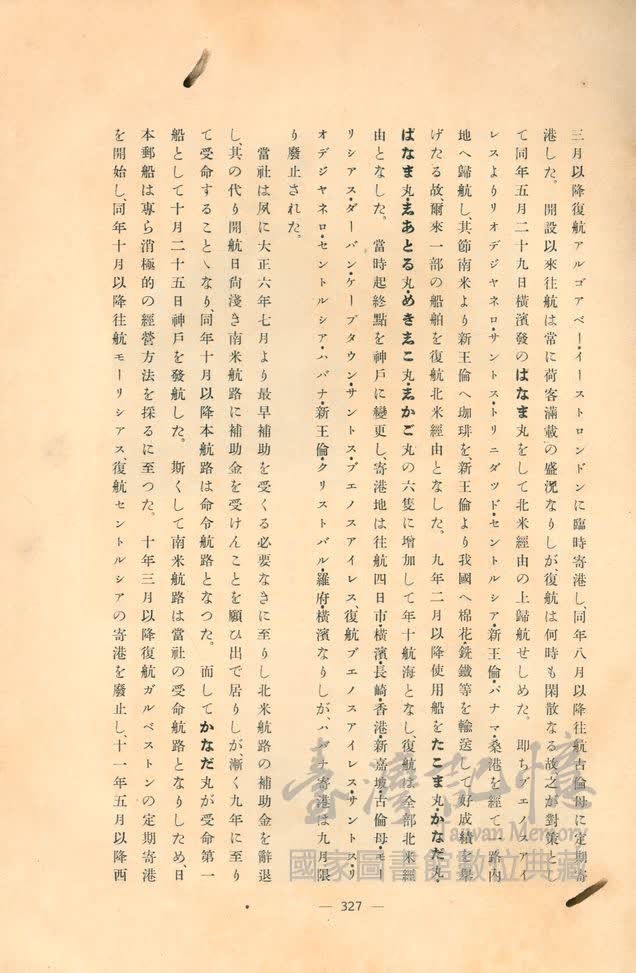 三月以降復航アルゴアベー・イーストロンドンに臨時寄港し、同年八月以降往航古倫母に定期寄
港した。　開設以來往航は常に荷客滿載の盛況なりしが復航は何時も閑散なる故之が對策とし
て同年五月二十九日橫濱發のはなま丸をして北米經由の上歸航せしめた。　卽ちブエノスアイ
レスよりリオデジヤネロ・サントス・トリニダツド・セントルシア・新王倫・パナマ・桑港を經て一路內
地へ歸航し、其節南米より新王倫へ珈琲を、新王倫より我國へ棉花・銑鐵等を輸送して好成績を擧
げたる故、爾來一部の船舶を復航北米經由となした。　九年二月以降使用船をたこま丸・かなだ丸・
ぱなま丸・志あとる丸・めき志こ丸・志かご丸の六隻に增加して年十航海となし、復航は全部北米經
由となした。　當時起終點を神戶に變更し、寄港地は往航四日市・橫濱・長崎・香港・新嘉坡・古倫母・モー
リシアス・ダーバン・ケープタウン・サントス・ブエノスアイレス、復航ブエノスアイレス・サントス・リ
オデジヤネロ・セントルシア・ハバナ・新王倫・クリストバル・羅府・橫濱なりしが、ハバナ寄港は九月限
り廢止された。
當社は夙に大正六年七月より最早補助を受くる必要なきに至りし北米航路の補助金を辭退
し、其の代り開航日尙淺き南米航路に補助金を受けんことを願ひ出で居りしが、漸く九年に至り
て受命することゝなり、同年十月以降本航路は命令航路となつた。　而してかなだ丸が受命第一
船として十月二十五日神戶を發航した。　斯くして南米航路は當社の受命航路となりしため、日
本郵船は專ら消極的の經營方法を採るに至つた。　十年三月以降復航ガルベストンの定期寄港
を開始し、同年十月以降往航モーリシアス、復航セントルシアの寄港を廢止し、十一年五月以降西
— 327 —
臺灣記憶
Taiwan Memory
國家圖書館數位典藏